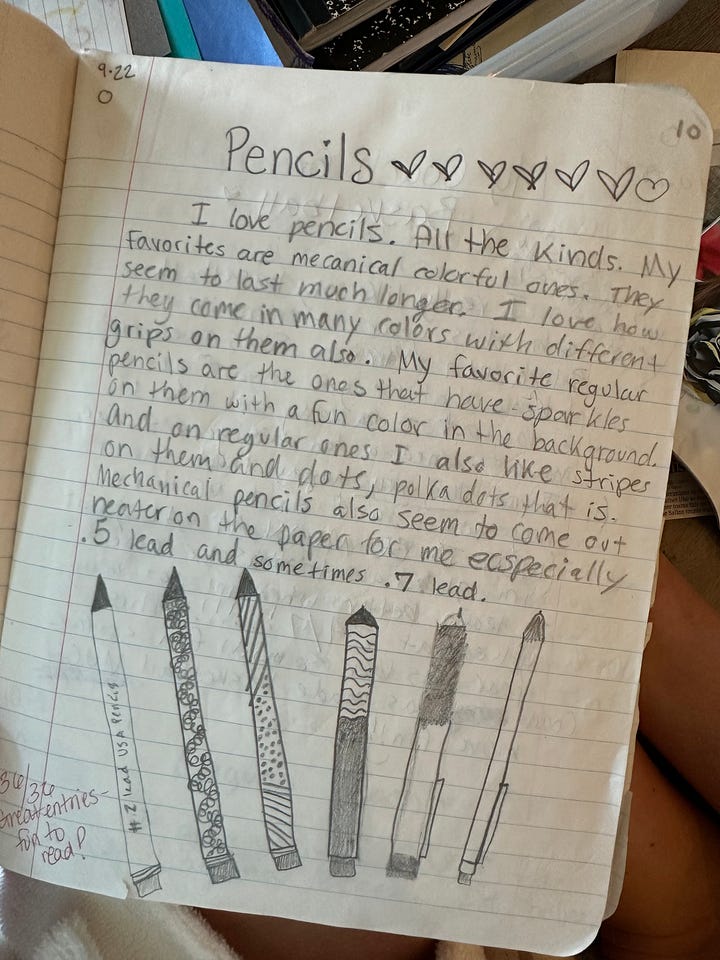 9.22
10
Pencils
I love pencils. All the kinds. My
favorites are mecanical colorful ones. They
seem to last much longer. I love how
they come in many colors with different
grips on them also. My favorite regular
pencils are the ones that have sparkles
on them with a fun color in the background.
And on regular ones I also like stripes
on them and dots, polka dots that is.
Mechanical pencils also seem to come out
neater on the paper for me ecspecially
.5 lead and sometimes .7 lead.
#2 lead USA Pencil
36/36
Great entries-
fun to
read!